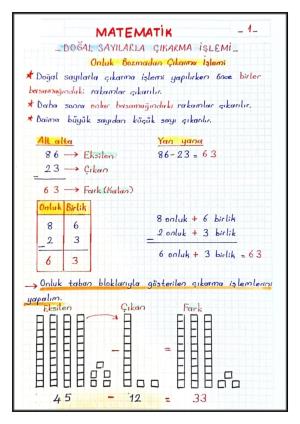 MATEMATİK - 1 -
DOĞAL SAYILARLA ÇIKARMA İŞLEMİ
Onluk Bozmadan Çıkarma İşlemi
* Doğal sayılarla çıkarma işlemi yapılırken önce birler
basamağındaki rakamlar çıkarılır.
* Daha sonra onlar basamağındaki rakamlar çıkarılır.
* Daima büyük sayıdan küçük sayı çıkarılır.
Alt alta
86 → Eksilen
- 23 → Çıkan
63 → Fark (Kalan)
Yan yana
86-23=63
Onluk Birlik
8 6
- 2 3
6 3
8 onluk + 6 birlik
- 2 onluk + 3 birlik
6 onluk + 3 birlik = 63
→ Onluk taban bloklarıyla gösterilen çıkarma işlemlerini
yapalım.
Eksilen Çıkan Fark
- =
45 - 12 = 33